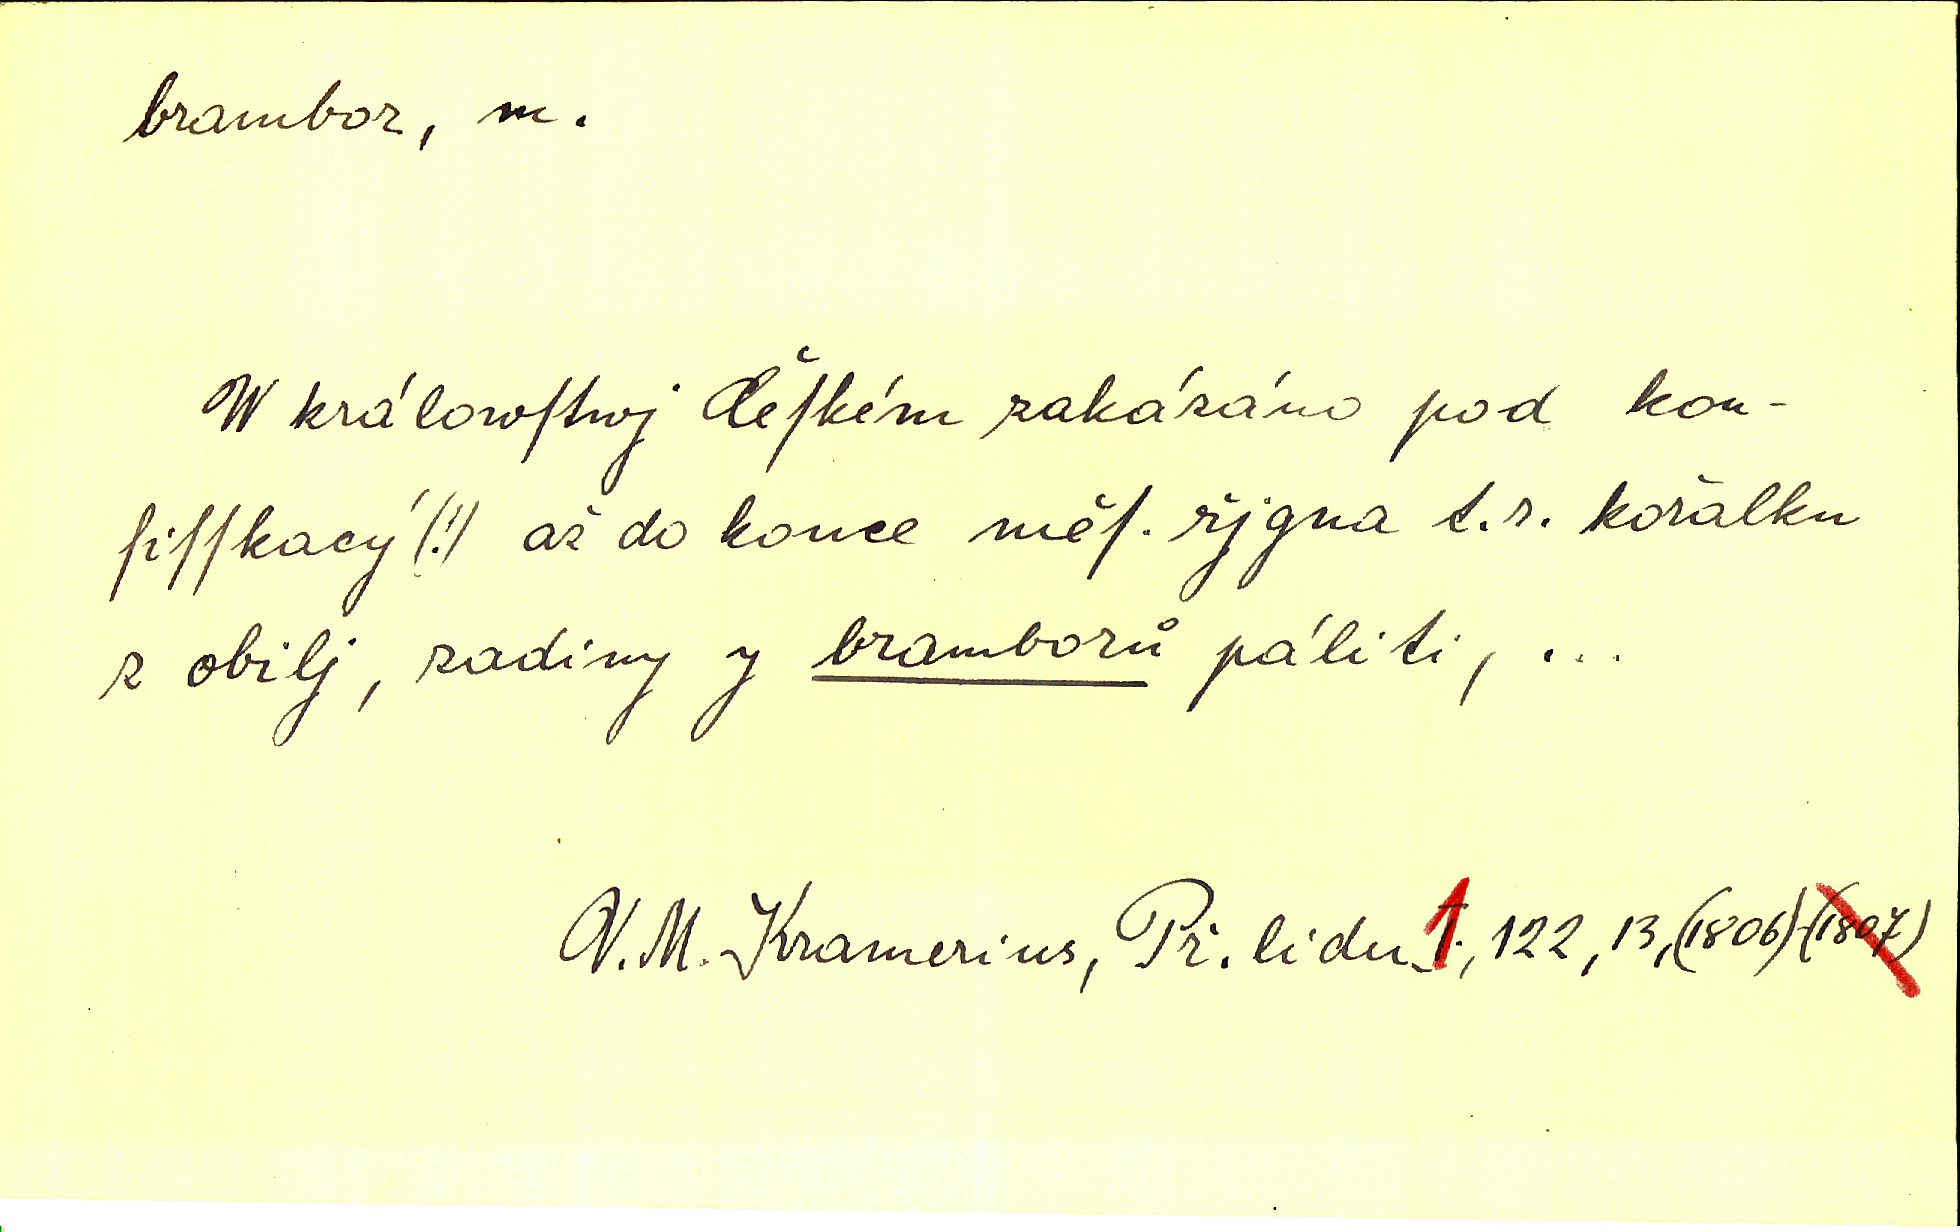 brambor, m.
W králowſtwj Čeſkém zakázáno pod kon-
fiſſkacý (!) až do konce měſ. řjgna t. r. kořalku
z obilj, zadiny y bramborů páliti, ...
V. M. Kramerius, Př. lidu 1., 122, 13, (1806)-(1807)